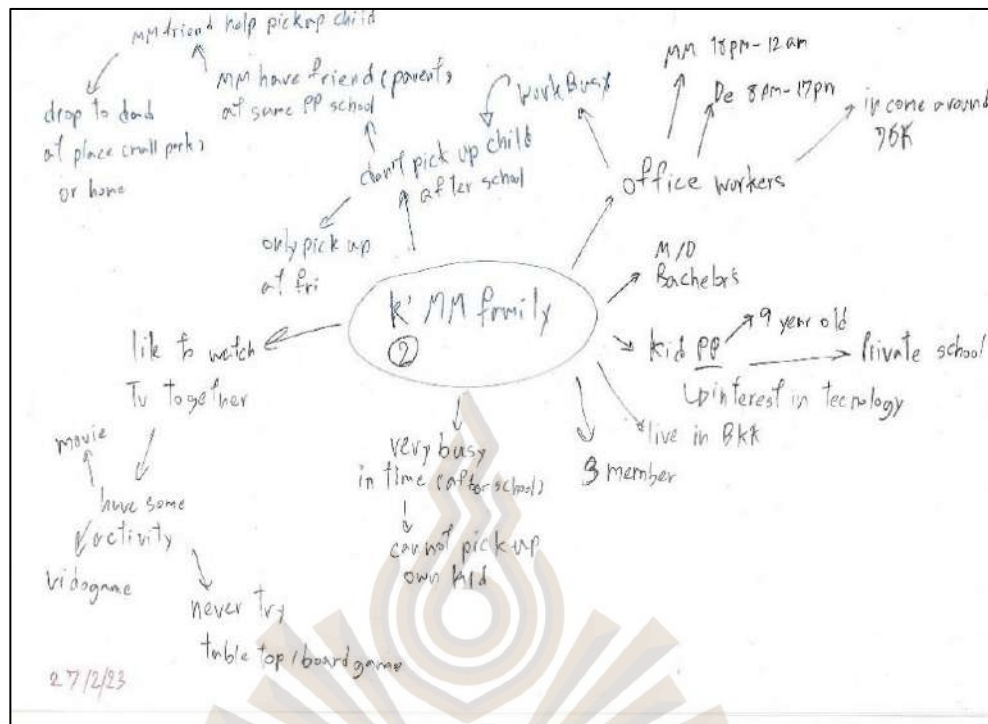 MM friend help pickup child
drop to dad
at place (mall park)
or home
MM have friend (parent)
at same PP school
don't pick up child
after school
only pick up
at fri
work Busy
MM 18pm-12am
De 8pm-17pm
income around
office workers
M/D
Bachelor's
k' MM family
2
kid PP
9 year old
Private school
interest in tecnology
live in BKK
3 member
very busy
in time (after school)
cannot pick up
own kid
lik to watch
TV together
movie
have some
activity
vidogame
never try
table top / board game
27/2/23